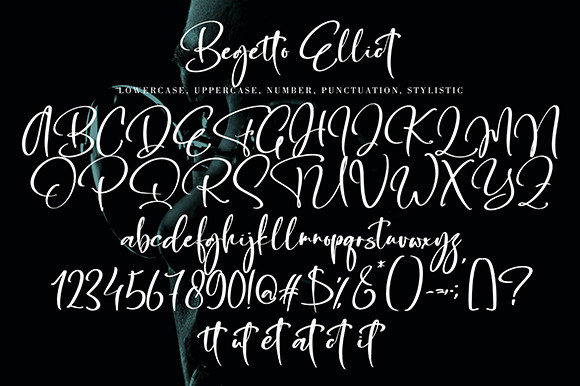 Begetto Elliot
LOWERCASE, UPPERCASE, NUMBER, PUNCTUATION, STYLISTIC
ABCDEFGHIJKLMN
OPQRSTUVWXYZ
abcdefghijkllmnopqrstuvwxyz,
1234567890!@#$%&*()-=~:;[]?
tt ut et at ct it